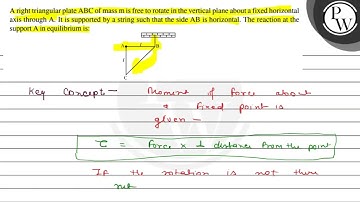 A right triangular plate ABC of mass m is free to rotate in the vertical plane about a fixed horizontal
axis through A. It is supported by a string such that the side AB is horizontal. The reaction at the
support A in equilibrium is:
PW
A l B
l
C
Key Concept - Moment of Force about
a fixed point is
given -
τ = Force × ⊥ distance from the point
If the rotation is not there
net